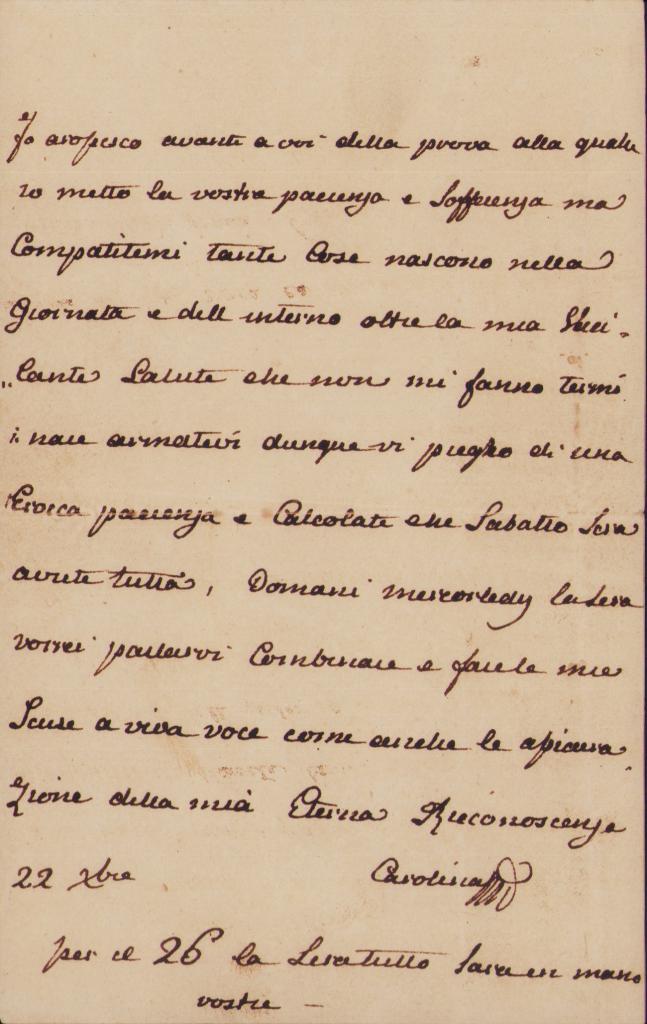 Io arosisco avanti a voi della prova alla quale
io metto la vostra pacienza e Sofferenza ma
Compatitemi tante Cose nascono nella
Giornata e dell interno oltre la mia Vaci-
„lante Salute che non mi fanno termi
: nare armatevi dunque vi priegho di una
Eroica pacienza e Calcolate che Sabatto Sera
avrete tutto, Domani mercorledy la sera
vorrei parlarvi Combinare e fare le mie
Scuse a viva voce come anche le asicura
zione della mia Eterna Riconoscenza
22 Xbre Carolina
per il 26 la Sera tutto Sara in mano
vostre —